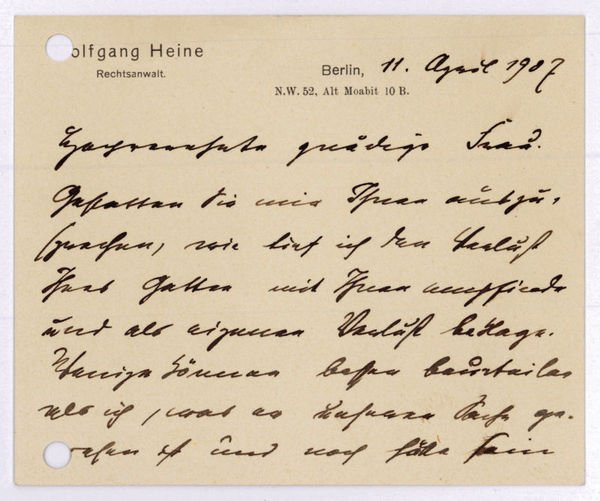 Wolfgang Heine
Rechtsanwalt.
Berlin, 11. April 1907
N.W. 52, Alt Moabit 10 B.
Hochverehrte gnädige Frau.
Gestatten Sie mir Ihnen auszu-
sprechen, wie tief ich den Verlust
Ihres Gatten mit Ihnen empfinde
und als eigenen Verlust beklage.
Wenige können besser beurteilen
als ich, was er unserer Sache ge-
wesen ist und noch hätte sein